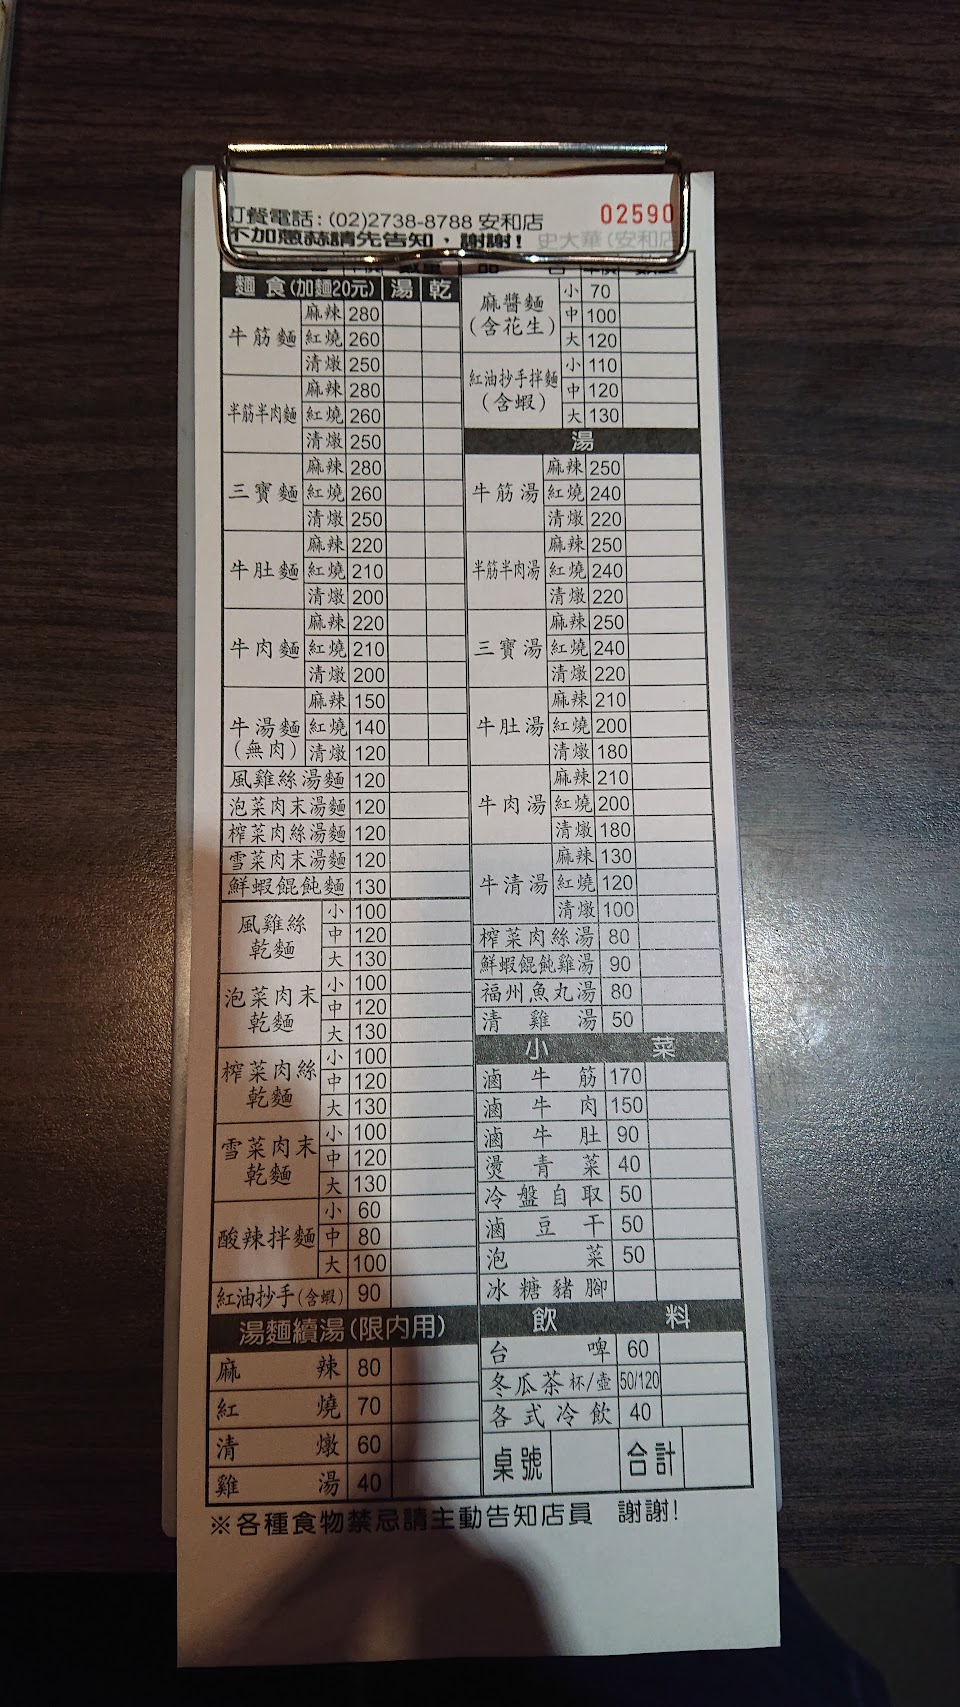 訂餐電話：(02)2738-8788 安和店
02590
不加蔥蒜請先告知，謝謝！ 史大華(安和店
麵食(加麵20元) 湯 乾
牛筋麵 麻辣 280
紅燒 260
清燉 250
半筋半肉麵 麻辣 280
紅燒 260
清燉 250
三寶麵 麻辣 280
紅燒 260
清燉 250
牛肚麵 麻辣 220
紅燒 210
清燉 200
牛肉麵 麻辣 220
紅燒 210
清燉 200
牛湯麵(無肉) 麻辣 150
紅燒 140
清燉 120
風雞絲湯麵 120
泡菜肉末湯麵 120
榨菜肉絲湯麵 120
雪菜肉末湯麵 120
鮮蝦餛飩麵 130
風雞絲乾麵 小 100
中 120
大 130
泡菜肉末乾麵 小 100
中 120
大 130
榨菜肉絲乾麵 小 100
中 120
大 130
雪菜肉末乾麵 小 100
中 120
大 130
酸辣拌麵 小 60
中 80
大 100
紅油抄手(含蝦) 90
湯麵續湯(限內用)
麻辣 80
紅燒 70
清燉 60
雞湯 40
麻醬麵(含花生) 小 70
中 100
大 120
紅油抄手拌麵(含蝦) 小 110
中 120
大 130
湯
牛筋湯 麻辣 250
紅燒 240
清燉 220
半筋半肉湯 麻辣 250
紅燒 240
清燉 220
三寶湯 麻辣 250
紅燒 240
清燉 220
牛肚湯 麻辣 210
紅燒 200
清燉 180
牛肉湯 麻辣 210
紅燒 200
清燉 180
牛清湯 麻辣 130
紅燒 120
清燉 100
榨菜肉絲湯 80
鮮蝦餛飩雞湯 90
福州魚丸湯 80
清雞湯 50
小菜
滷牛筋 170
滷牛肉 150
滷牛肚 90
燙青菜 40
冷盤自取 50
滷豆干 50
泡菜 50
冰糖豬腳
飲料
台啤 60
冬瓜茶 杯/壺 50/120
各式冷飲 40
桌號 合計
※各種食物禁忌請主動告知店員 謝謝!